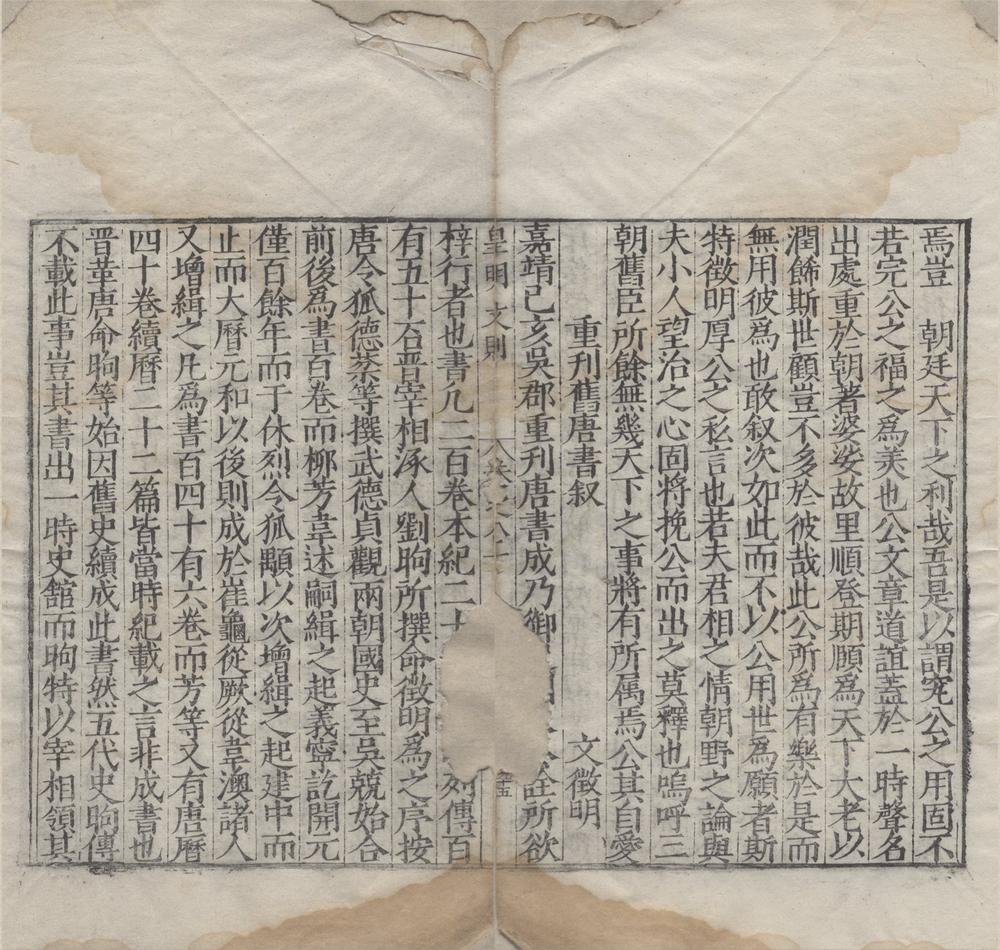 焉豈　朝廷天下之利哉吾是以謂完公之用固不
若完公之福之為美也公文章道誼蓋於一時聲名
出處重於朝著婆娑故里順登期願為天下大老以
潤餙斯世顧豈不多於彼哉此公所為有樂於是而
無用彼為也敢叙次如此而不以公用世為願者斯
特徵明厚公之私言也若夫君相之情朝野之論與
夫小人望治之心固將挽公而出之莫釋也嗚呼三
朝舊臣所餘無幾天下之事將有所属焉公其自愛
重刊舊唐書叙　文徵明
嘉靖己亥吳郡重刊唐書成乃御詮所欲
梓行者也書凢二百卷本紀二十列傳百
有五十石晋宰相涿人劉昫所撰命徵明為之序按
唐令狐德棻等撰武德貞觀兩朝國史至吳兢始合
前後為書百卷而柳芳韋述嗣緝之起義寧訖開元
僅百餘年而于休烈令狐顒以次增緝之起建中而
止而大曆元和以後則成於崔龜從厥從韋澳諸人
又增緝之凢為書百四十有六卷而芳等又有唐曆
四十卷續曆二十二篇皆當時紀載之言非成書也
晋革唐命昫等始因舊史續成此書然五代史昫傳
不載此事豈其書出一時史館而昫特以宰相領其
皇明文則